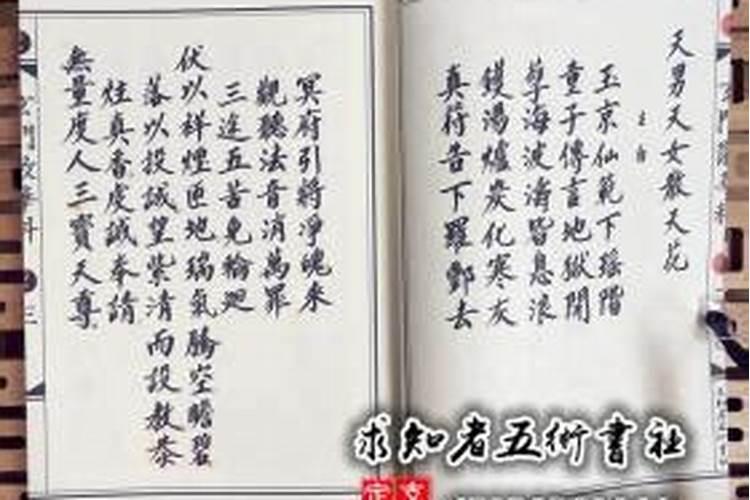 天男天女散天花
主白
玉京仙範下瑤階
童子傳言地獄開
孽海波濤皆息浪
鑊湯爐炭化寒灰
真符告下羅酆去
冥府引將淨魄來
觀聽法音消萬罪
三途五苦免輪迴
伏以祥煙匝地瑞氣騰空瞻碧
落以投誠望紫清而設教恭
炷真香虔誠奉請
無量度人三寶天尊
三
求知者五術書社